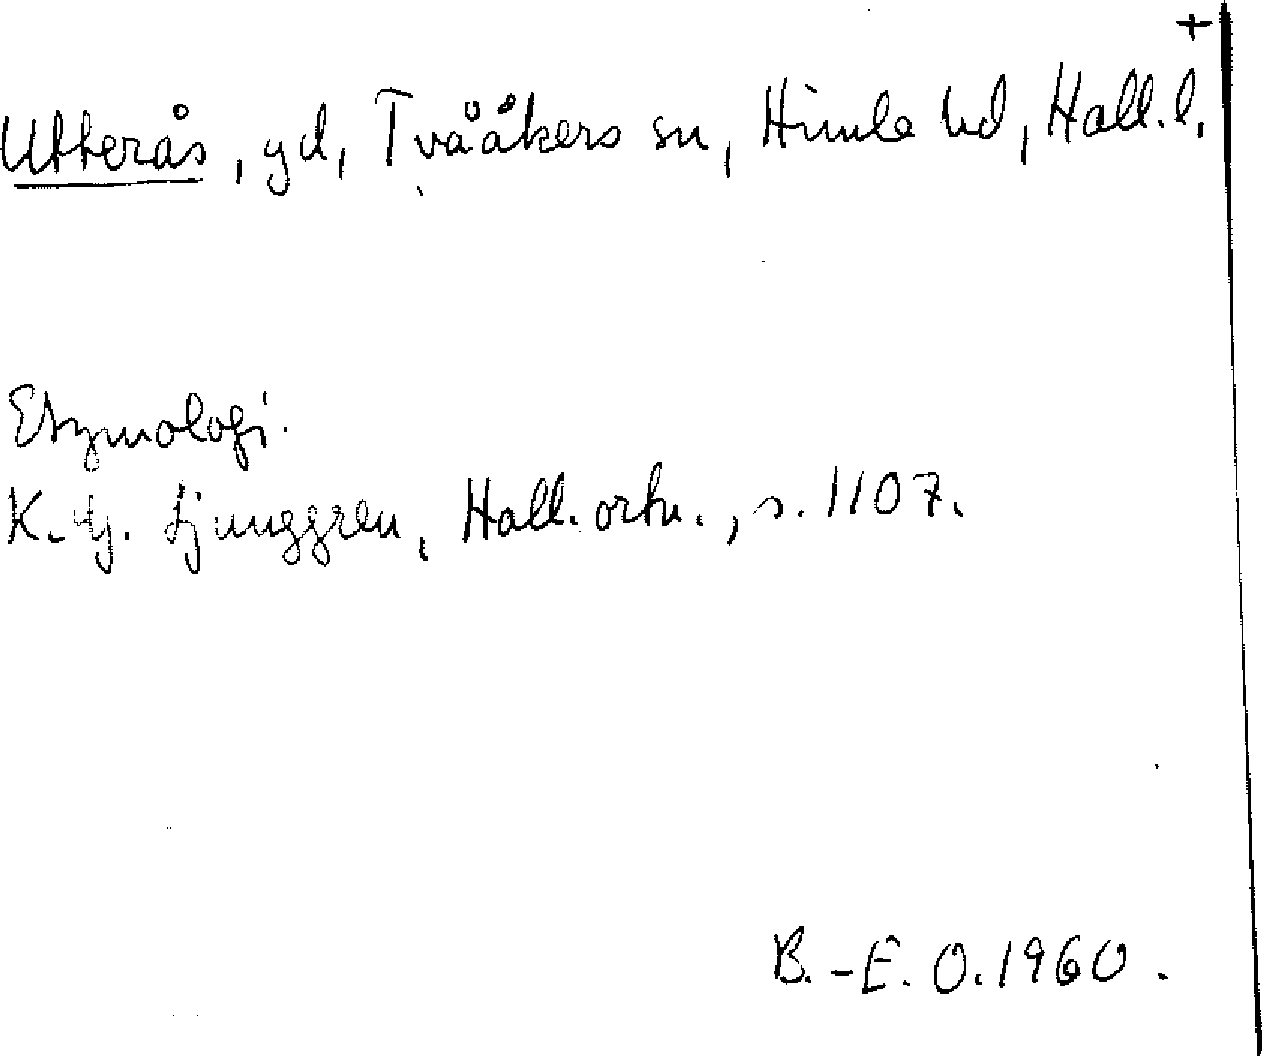 +
Utterås, gd, Tvååkers sn, Himle hd, Hall. l.
Etymologi.
K. G. Ljunggren, Hall. ortn., s. 1107.
B.-E. O. 1960.